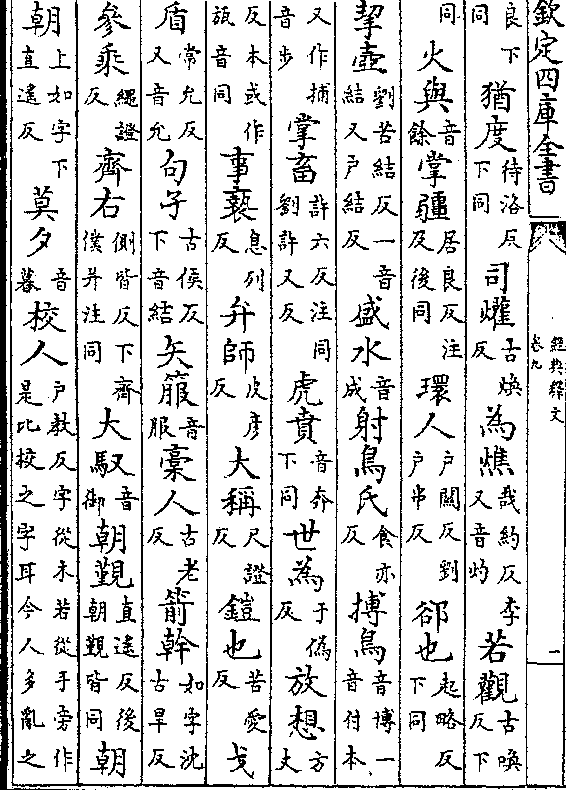 欽定四庫全書
經典釋文
卷九
一
良下同猶度待洛反下同司爟古煥反為燋哉約反李又音灼若觀古喚反下
同火與音餘掌疆居良反注及後同環人户關反劉户串反郤也起略反下同
挈壺劉苦結反一音結又户結反盛水音成射鳥氏食亦反搏鳥音博一音付本
又作捕音步掌畜許六反注同劉許又反虎賁音奔下同世為于偽反放想方丈
反本或作瓬音同事褻息列反弁師皮彦反大稱尺證反鎧也苦愛反戈
盾常允反又音允句子古侯反下音結矢箙音服槀人古老反箭幹如字沈古旱反
參乘繩證反齊右側皆反下齊僕并注同大馭音御朝覲直遥反後朝覲皆同朝
朝上如字下直遥反莫夕音暮校人户教反字從木若從手旁作是比挍之字耳今人多亂之